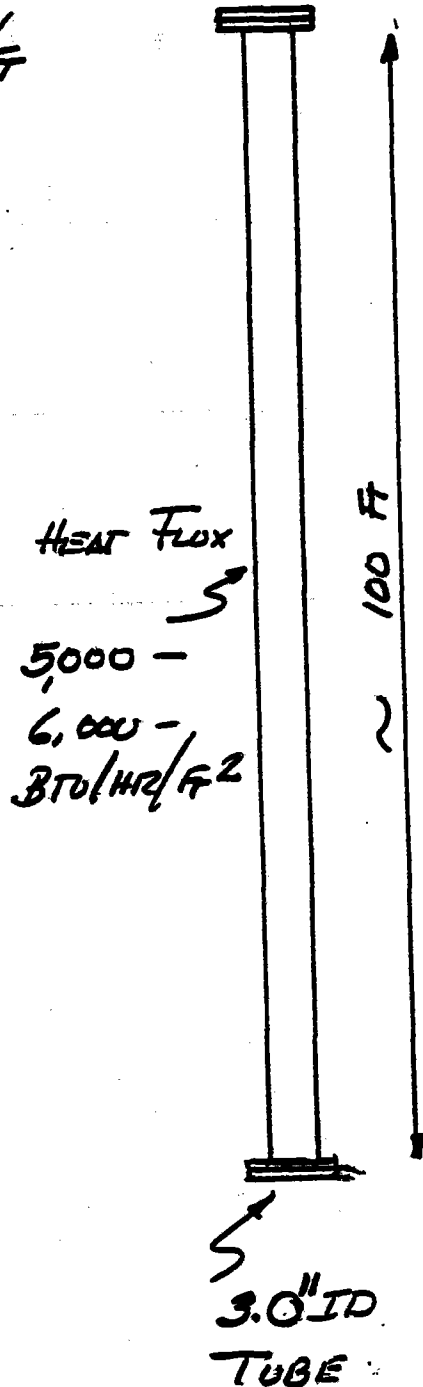 HEAT FLUX
5,000 -
6,000 -
BTU/HR/FT2
~ 100 FT
3.0" ID
TUBE